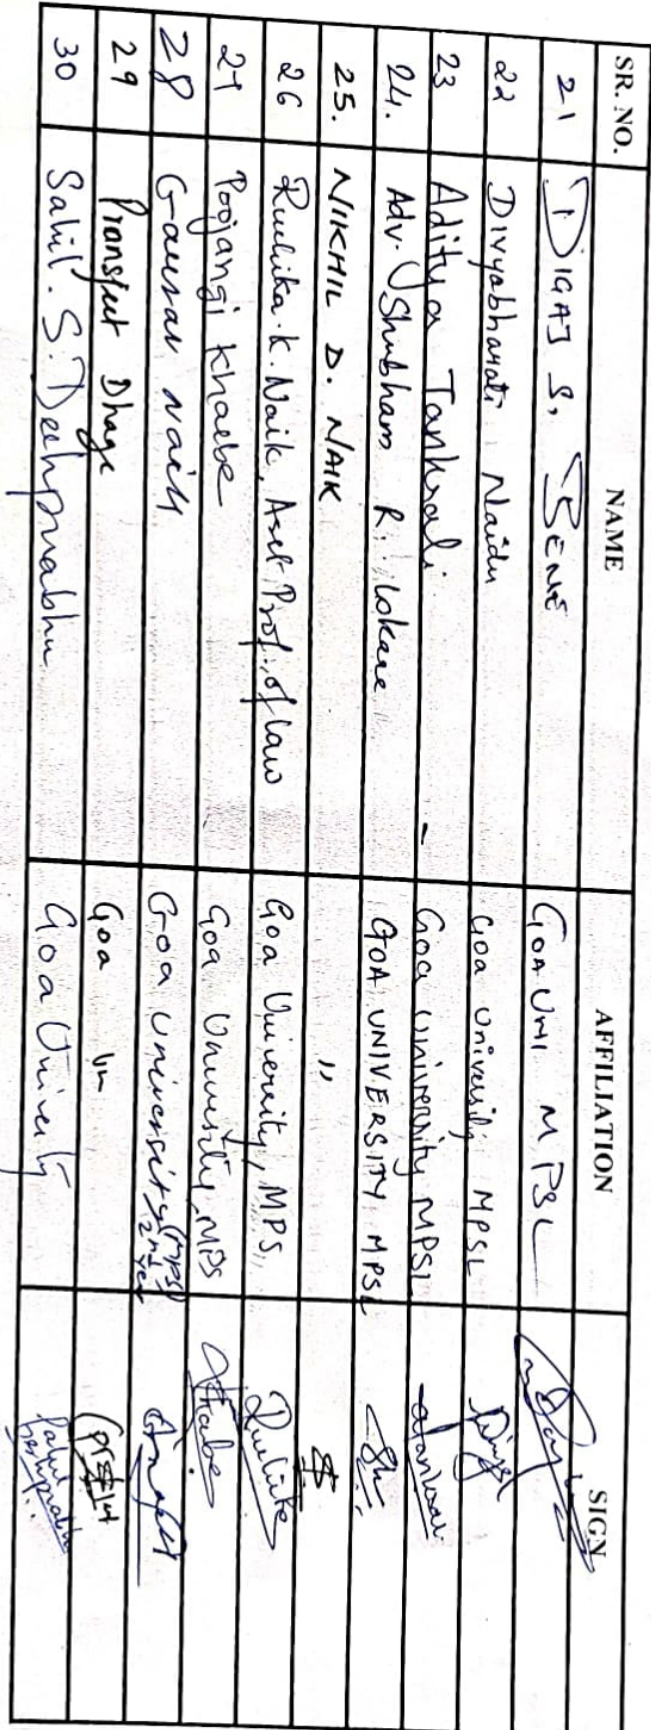 SR. NO. NAME AFFILIATION SIGN
21 DIGAJ S. BENE GOA UNI MPSL
22 Divyabharati Naidu Goa University MPSL
23 Aditya Tanksali Goa University MPSL
24. Adv. Shubham R. Lokare GOA UNIVERSITY MPSL
25. NIKHIL D. NAIK "
26 Ruchika K. Naik, Asst. Prof. of law Goa University, MPS,
27 Poojangi Khaebe Goa University, MPS
28 Gaurav naik Goa University (MPSL 2nd year
29 Pranjeet Dhage Goa Un
30 Sahil. S. Deshprabhu Goa University